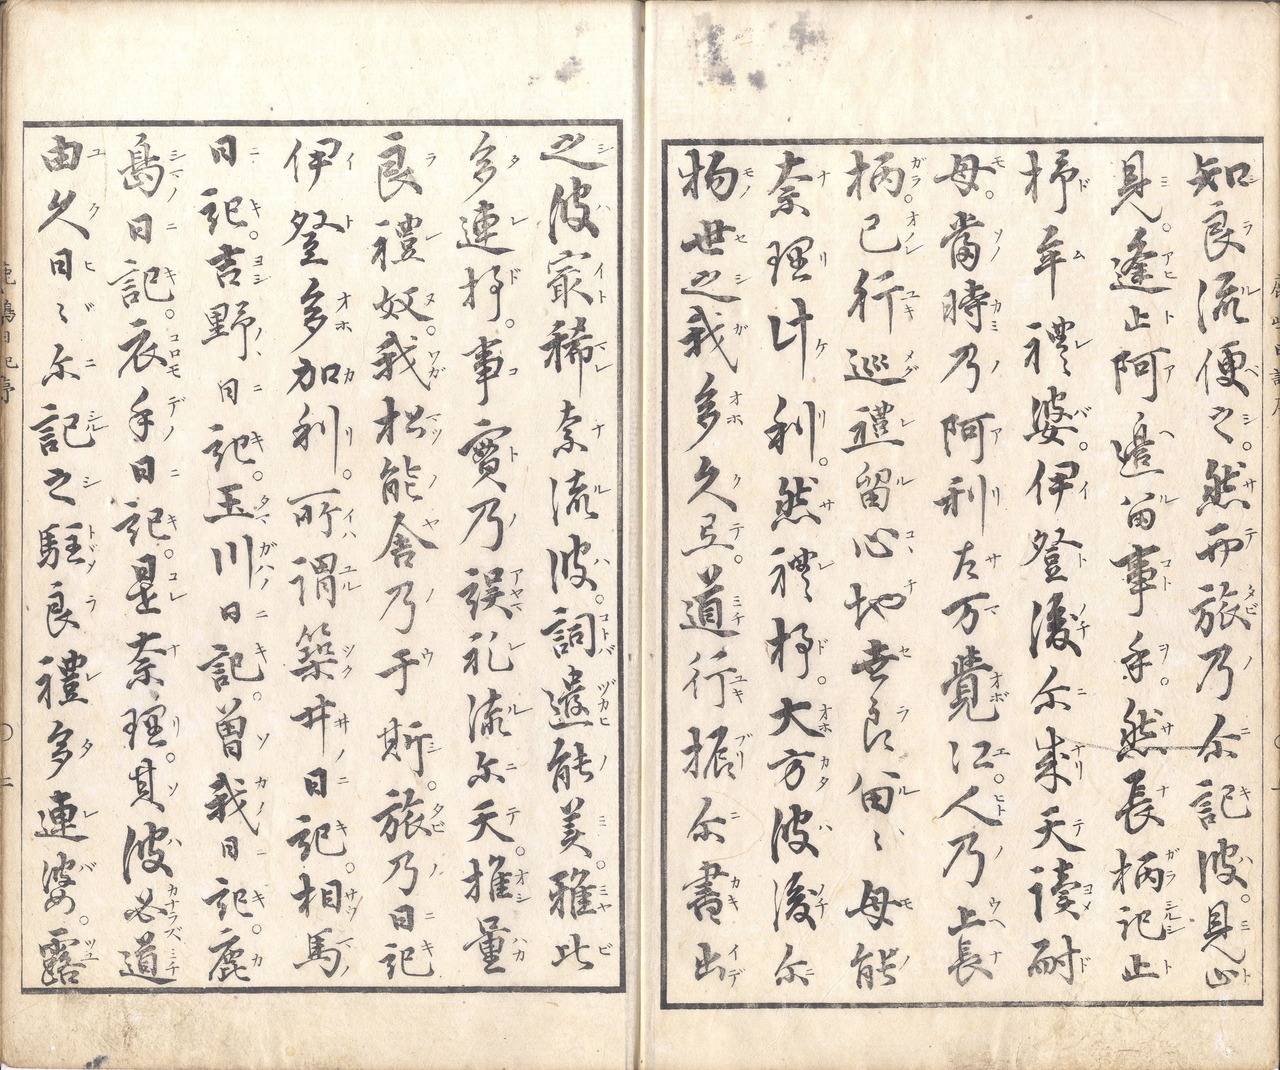 知良流便之。然而旅乃尓記波。見止
見。逢止阿邊留事乎。然長柄記止
杼年禮婆。伊登後尓成天讀耐
母。當時乃阿利左万覺江。人乃上長
柄。已行巡禮留心地世良留々母能
奈理計利。然禮杼。大方波後尓
物世之我多久弖。道行振尓書出
之波最稀奈流波。詞遣能美。雅此
多連杼。事實乃誤礼流尓天。推量
良禮奴。我松能舎乃于斯。旅乃日記
伊登多加利。所謂築井日記。相馬
日記。吉野日記。玉川日記。曽我日記。鹿
島日記。衣手日記。是奈理。其波必道
由久日々尓記之駐良禮多連婆。露